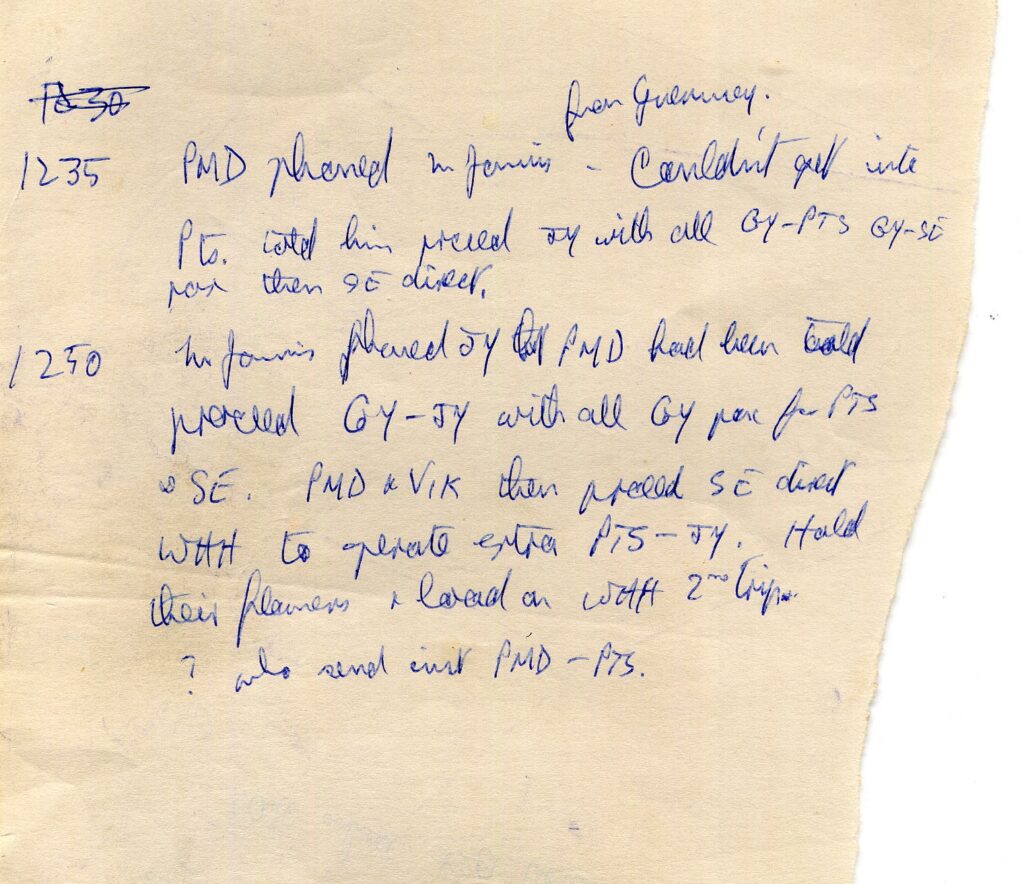 1230
from Guernsey.
1235 PMD phoned Mr Jarvis - Couldn't get into
Pts. told him proceed JY with all GY-PTS GY-SE
pax then SE direct.
1250 Mr Jarvis phoned JY PMD had been told
proceed GY-JY with all GY pax for PTS
SE. PMD & VIK then proceed SE direct
WHH to operate extra PTS-JY. Hold
their flowers & load on WHH 2nd trip.
? who send PMD-PTS.